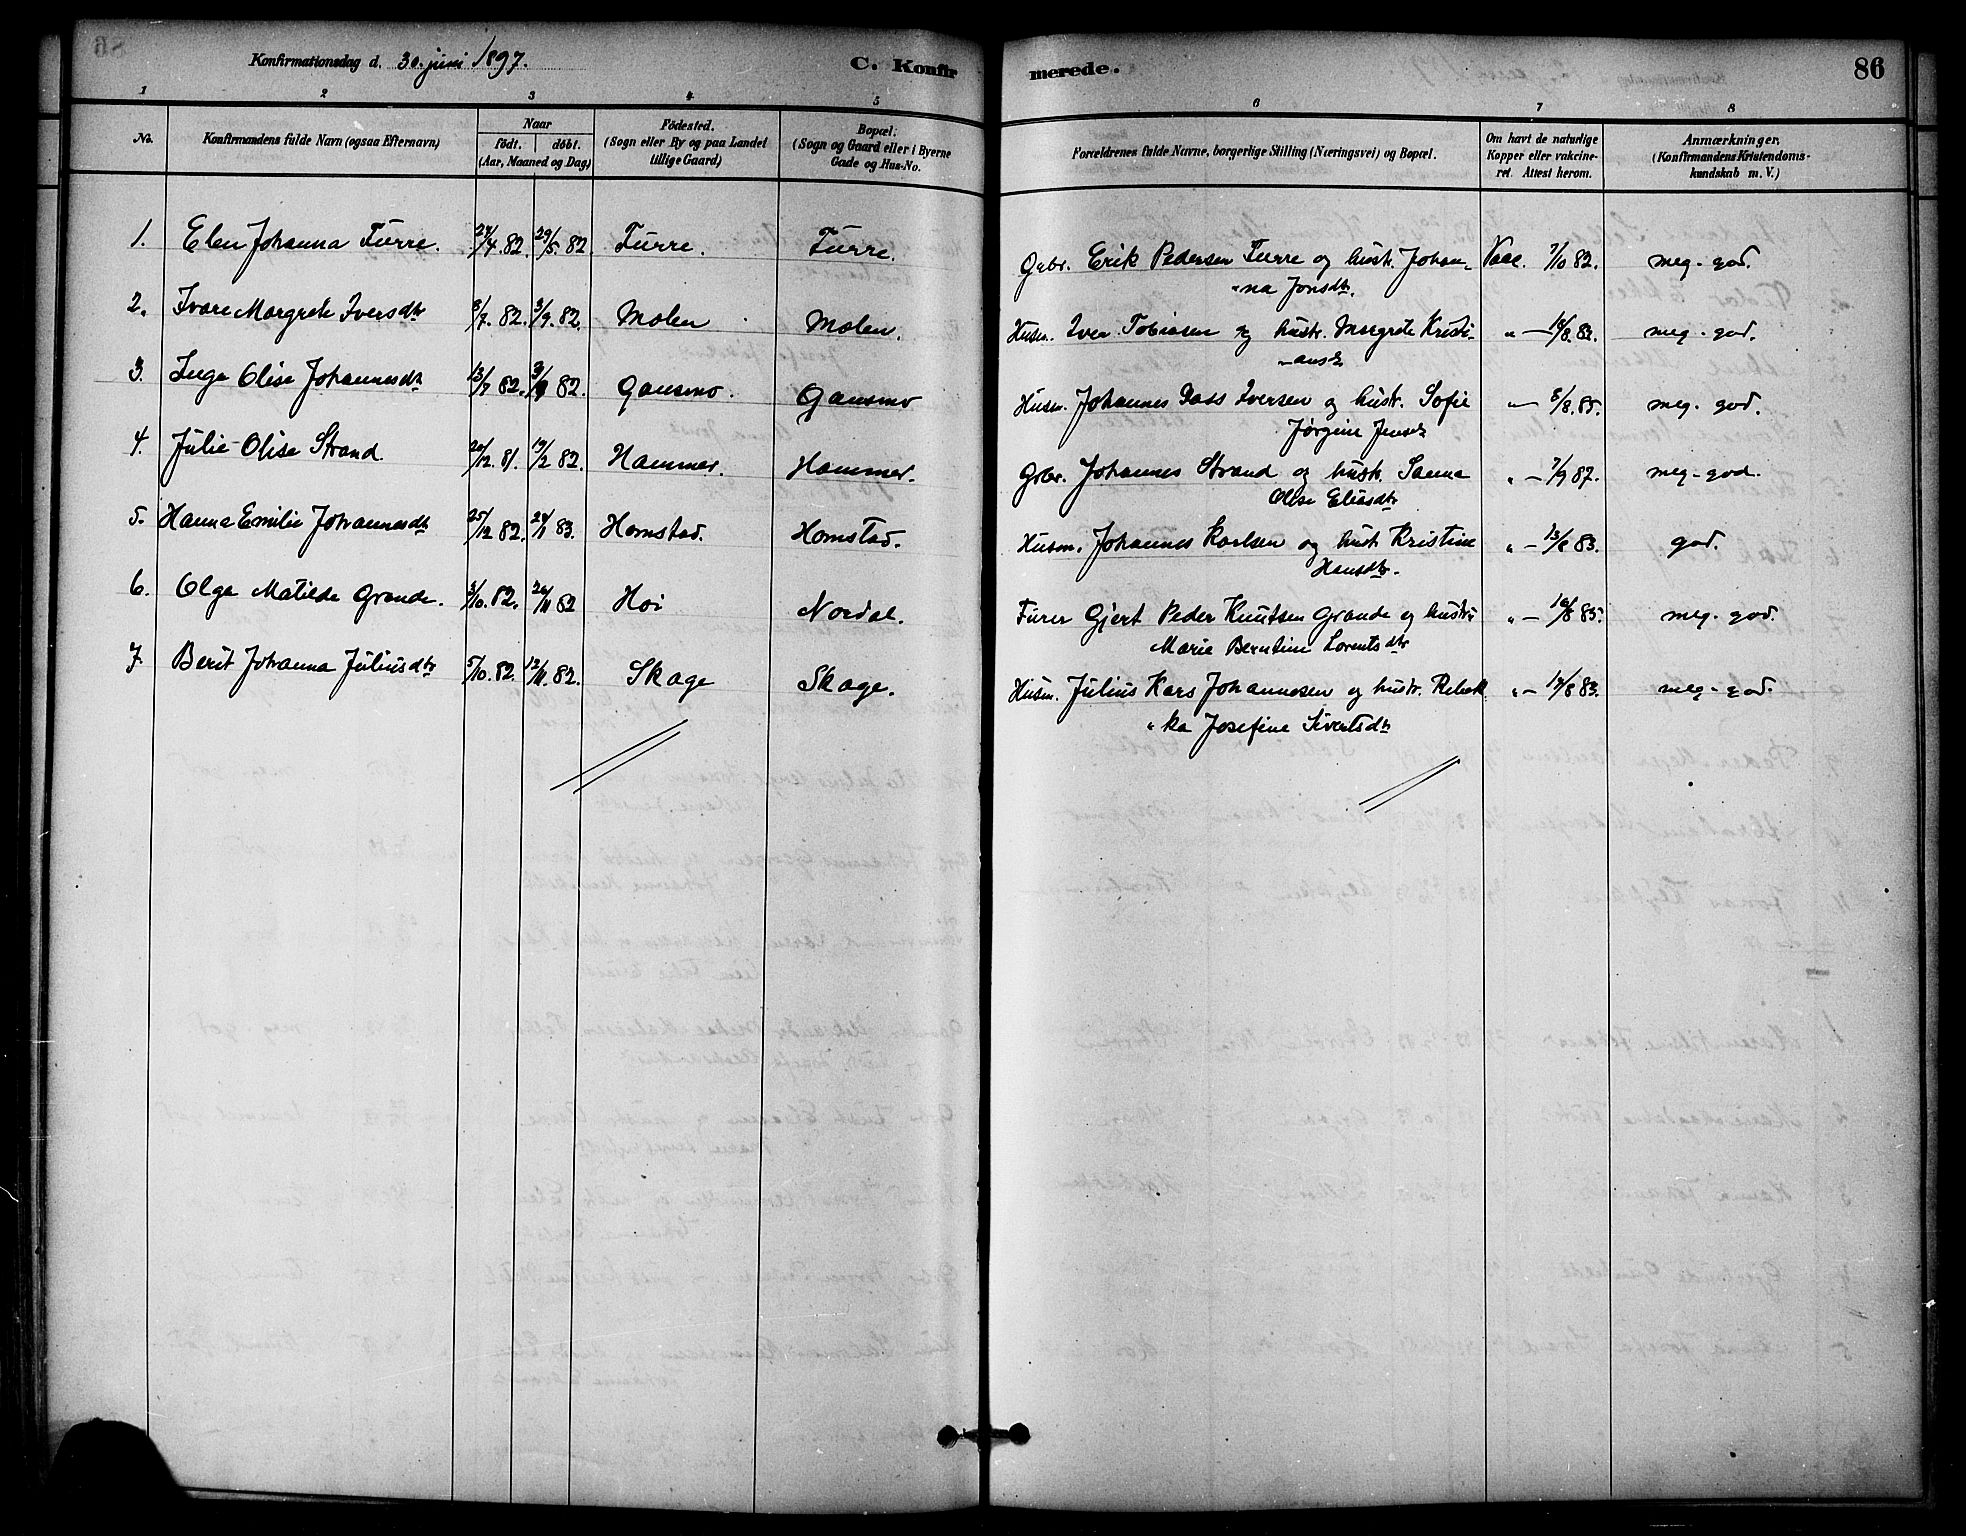 Konfirmationsdag d. 30. juni 1897.
C. Konfirmerede.
86
1 2 3 4 5 6 7 8
No.
Konfirmandens fulde Navn (ogsaa Efternavn)
Naar
födt. döbt.
(Aar, Maaned og Dag)
Födested.
(Sogn eller By og paa Landet
tillige Gaard)
Bopæl.
(Sogn og Gaard eller i Byerne
Gade og Hus-No.
Forældrenes fulde Navne, borgerlige Stilling (Næringsvei) og Bopæl.
Om havt de naturlige
Kopper eller vakcine-
ret. Attest herom.
Anmærkninger.
(Konfirmandens Kristendoms-
kundskab m. V.)
1. Elen Johanna Furre. 24/4. 82. 29/5. 82. Furre. Furre. Grbr. Erik Pedersen Furre og hustr. Johan- Vacc. 7/10 82. meg. god.
"na Jonsdtr.
2. Ivare Margrete Iversdtr 8/7. 82. 3/9. 82. Molen Molen. Husm. Iver Tobiasen og hustr. Margrete Kristi- " — /8. 83. meg. god.
"ansd
3. Inga Olise Johannesdtr 13/7 82. 3/9 82. Gansmo. Gansmo Husm. Johannes Dass Iversen og hustr. Sofie " — 8/8. 85. meg. god.
Jørgine Jensd
4. Julie Olise Strand 20/12. 81. 19/2 82. Hammer. Hammer. Grbr. Johannes Strand og hustr. Sanna " — 7/9 87. meg. god.
Olise Eliasdtr
5. Hanna Emilie Johannesdtr 25/12 82. 24/1 83. Homstad. Homstad. Husm. Johannes Karlsen og hust. Kristine " — 13/8 83. god.
Hansdtr.
6. Olga Matilde Grande. 3/10. 82. 26/11 82 Høi Nordal. Furer Gjert Peder Knutsen Grande og hustr " — /8 85. meg. god.
Marie Berntine Lorentsdtr
7. Berit Johanna Juliusdtr 5/10. 82. 12/11. 82. Skage Skage. Husm. Julius Kars Johannesen og hustr. Rebek " — 14/8 83. meg. god.
"ka Josefine Sivertsdtr